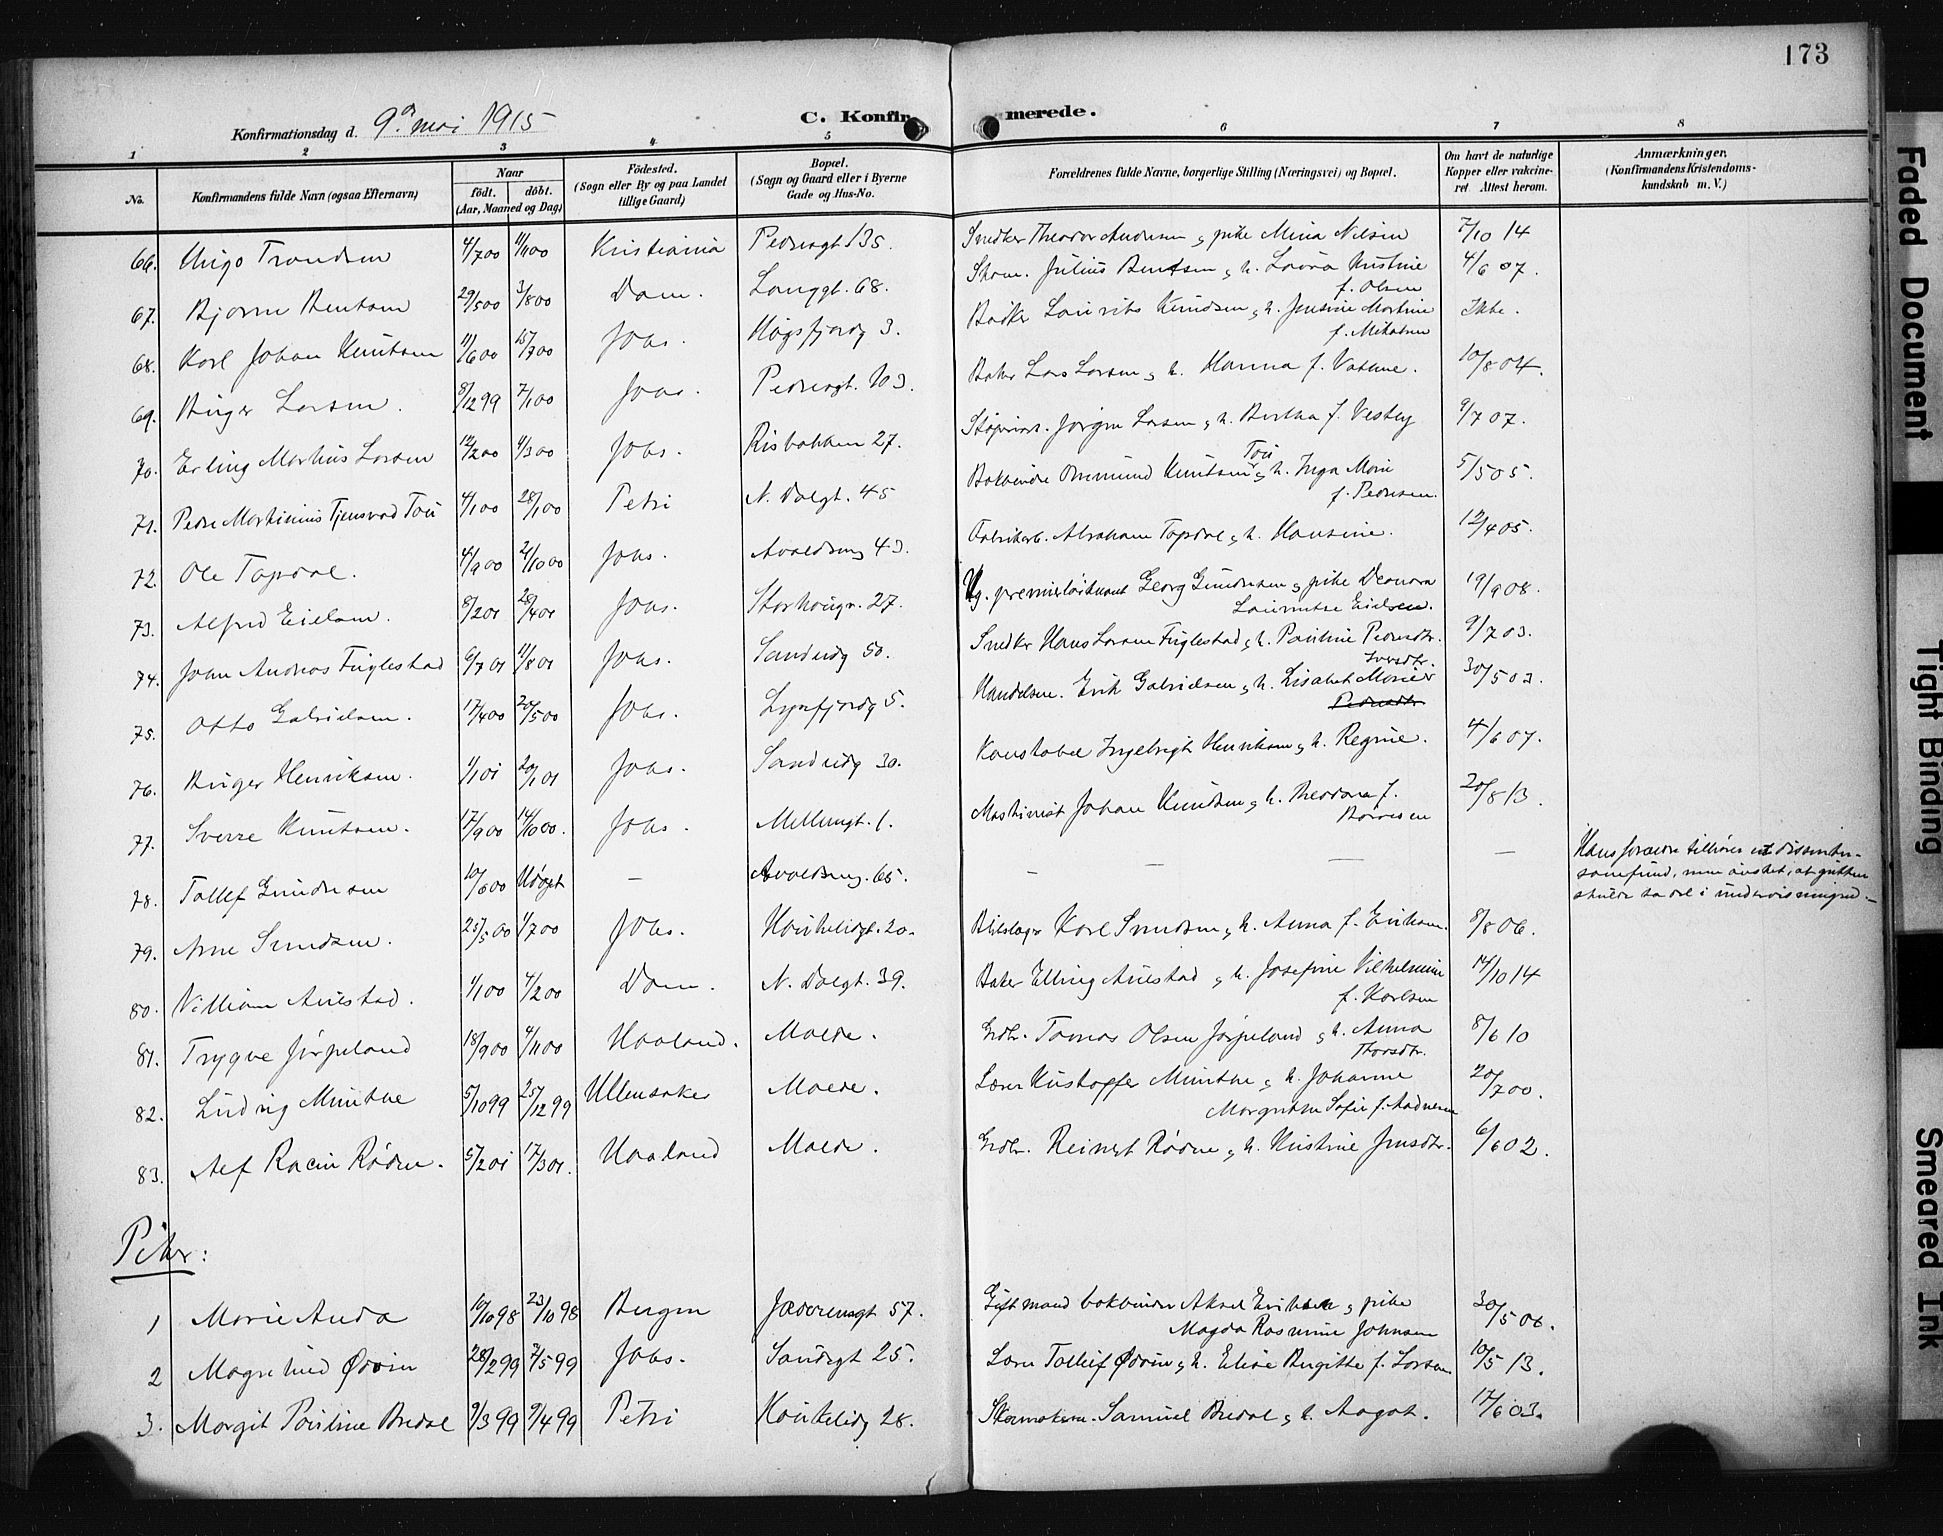 173
Konfirmationsdag d. 9de mai 1915
C. Konfirmerede.
1 2 3 4 5 6 7 8
No. Konfirmandens fulde Navn (ogsaa Efternavn) Naar født. døbt. (Aar, Maaned og Dag) Fødested. (Sogn eller By og paa Landet tillige Gaard) Bopæl. (Sogn og Gaard eller i Byerne Gade og Hus-No. Forældrenes fulde Navne, borgerlige Stilling (Næringsvei) og Bopæl. Om havt de naturlige Kopper eller vakcineret. Attest herom. Anmærkninger. (Konfirmandens Kristendomskundskab m. V.)
66. Hugo Trondsen 4/7 00 11/11 00 Kristiania Pedersgt 135. Snedker Theodor Andersen & pike Mina Nilsen 7/10 14
67. Bjarne Bentsen 29/5 00 3/8 00 Dom. Langgt. 68. Skom. Julius Bentsen & h. Laura Kristine f. Olsen 4/6 07.
68. Karl Johan Knutsen 11/6 00 15/7 00 Johs. Høgsfjordg 3. Bødker Lauritz Knudsen & h. Jensine Martine f. Mikalsen Ikke.
69. Birger Larsen. 8/12 99 7/1 00 Johs. Pedersgt. 103. Baker Lars Larsen & h. Hanna f. Vatne. 10/8 04.
70. Erling Markus Larsen 12/2 00 9/3 00 Johs. Risbakken 27. Støperiarb. Jørgen Larsen & h. Bertha f. Vestby 9/7 07.
71. Peder Martinius Tjensvad Tou 4/1 00 28/1 00 Petri N. Dalgt. 45 Bokbinder Omund Knutsen Tou & h. Inga Marie f. Pedersen. 5/5 05.
72. Ole Topdal. 4/9 00 21/10 00 Johs. Avaldsnsg 43. Fabrikarb. Abraham Topdal & h. Hansine. 12/4 05.
73. Alfred Eielsen. 8/2 01 28/4 01 Johs. Storhougv. 27. Ug. premierløitnant Georg Gundersen & pike Deonora Lauentse Eielsen. 19/9 08.
74. Joan Andreas Fuglestad 6/7 01 11/8 01 Johs. Sandeidg 50. Snedker Hans Larsen Fuglestad & h. Pauline Pedersdtr. 9/7 03.
75. Otto Gabrielsen. 17/4 00 20/5 00 Johs. Lysefjordg 5. Handelsm. Erik Gabrielsen & h. Lisabet Marie Iversdtr. Pedersdtr 30/5 03.
76. Birger Henriksen. 1/1 01 20/1 01 Johs. Sandeidg 30. Konstabel Ingebrigt Henriksen & h. Regine. 4/6 07.
77. Sverre Knutsen. 17/9 00 14/10 00. Johs. Mellemgt. 1. Maskinist Johan Knudsen & h. Theodora f. 20/8 13.
78. Tollef Gundersen 10/6 00 Udøpt — Avaldsnsg. 65. — — — — Hans forældre tilhører et dissenter-
samfund, men ønsket, at gutten
skulde ta del i undervisningen. —
79. Arne Svendsen. 25/5 00 1/7 00 Johs. Haukeligt. 20. Blikslager Karl Svendsen & h. Anna f. Eriksen. 8/8 06.
80. William Aulstad. 1/1 00 4/2 00 Dom. N. Dalgt. 39. Baker Elling Aulstad & h. Josefine Vilhelmine f. Karlsen 14/10 14
81. Trygve Jørpeland 18/9 00 4/11 00 Haaland. Madla. Grdbr. Tomas Olsen Jørpeland & h. Anna Thorsdtr. 8/6 10
82. Ludvig Munthe 5/10 99 25/12 99 Ullensaker Madla. Lærer Kristoffer Munthe & h. Johanne Margrethe Sofie f. Aadnesen 20/7 00.
83. Alf Racin Rødne. 5/2 01 17/3 01. Haaland Madla. Grdbr. Reinert Rødne & h. Kristine Jensdtr. 6/6 02.
Piker:
1 Marie Auda 10/10 98 23/10 98 Bergen Jæderensgt 57. Gift mand bokbinder Aksel Eriksen & pike Magda Rasmine Johnsen 30/5 06.
2 Magnhild Ødvin 28/2 99 7/5 99 Johs. Sandsgt 25. Lærer Tolleif Ødvin & h. Elise Birgitte f. Larsen 10/5 13.
3. Margit Pauline Bredal 9/3 99 9/4 99 Petri Haukelidg 28. Skomakerm. Samuel Bredal & h. Aagot. 17/6 03.
Faded Document
Tight Binding
Smeared Ink